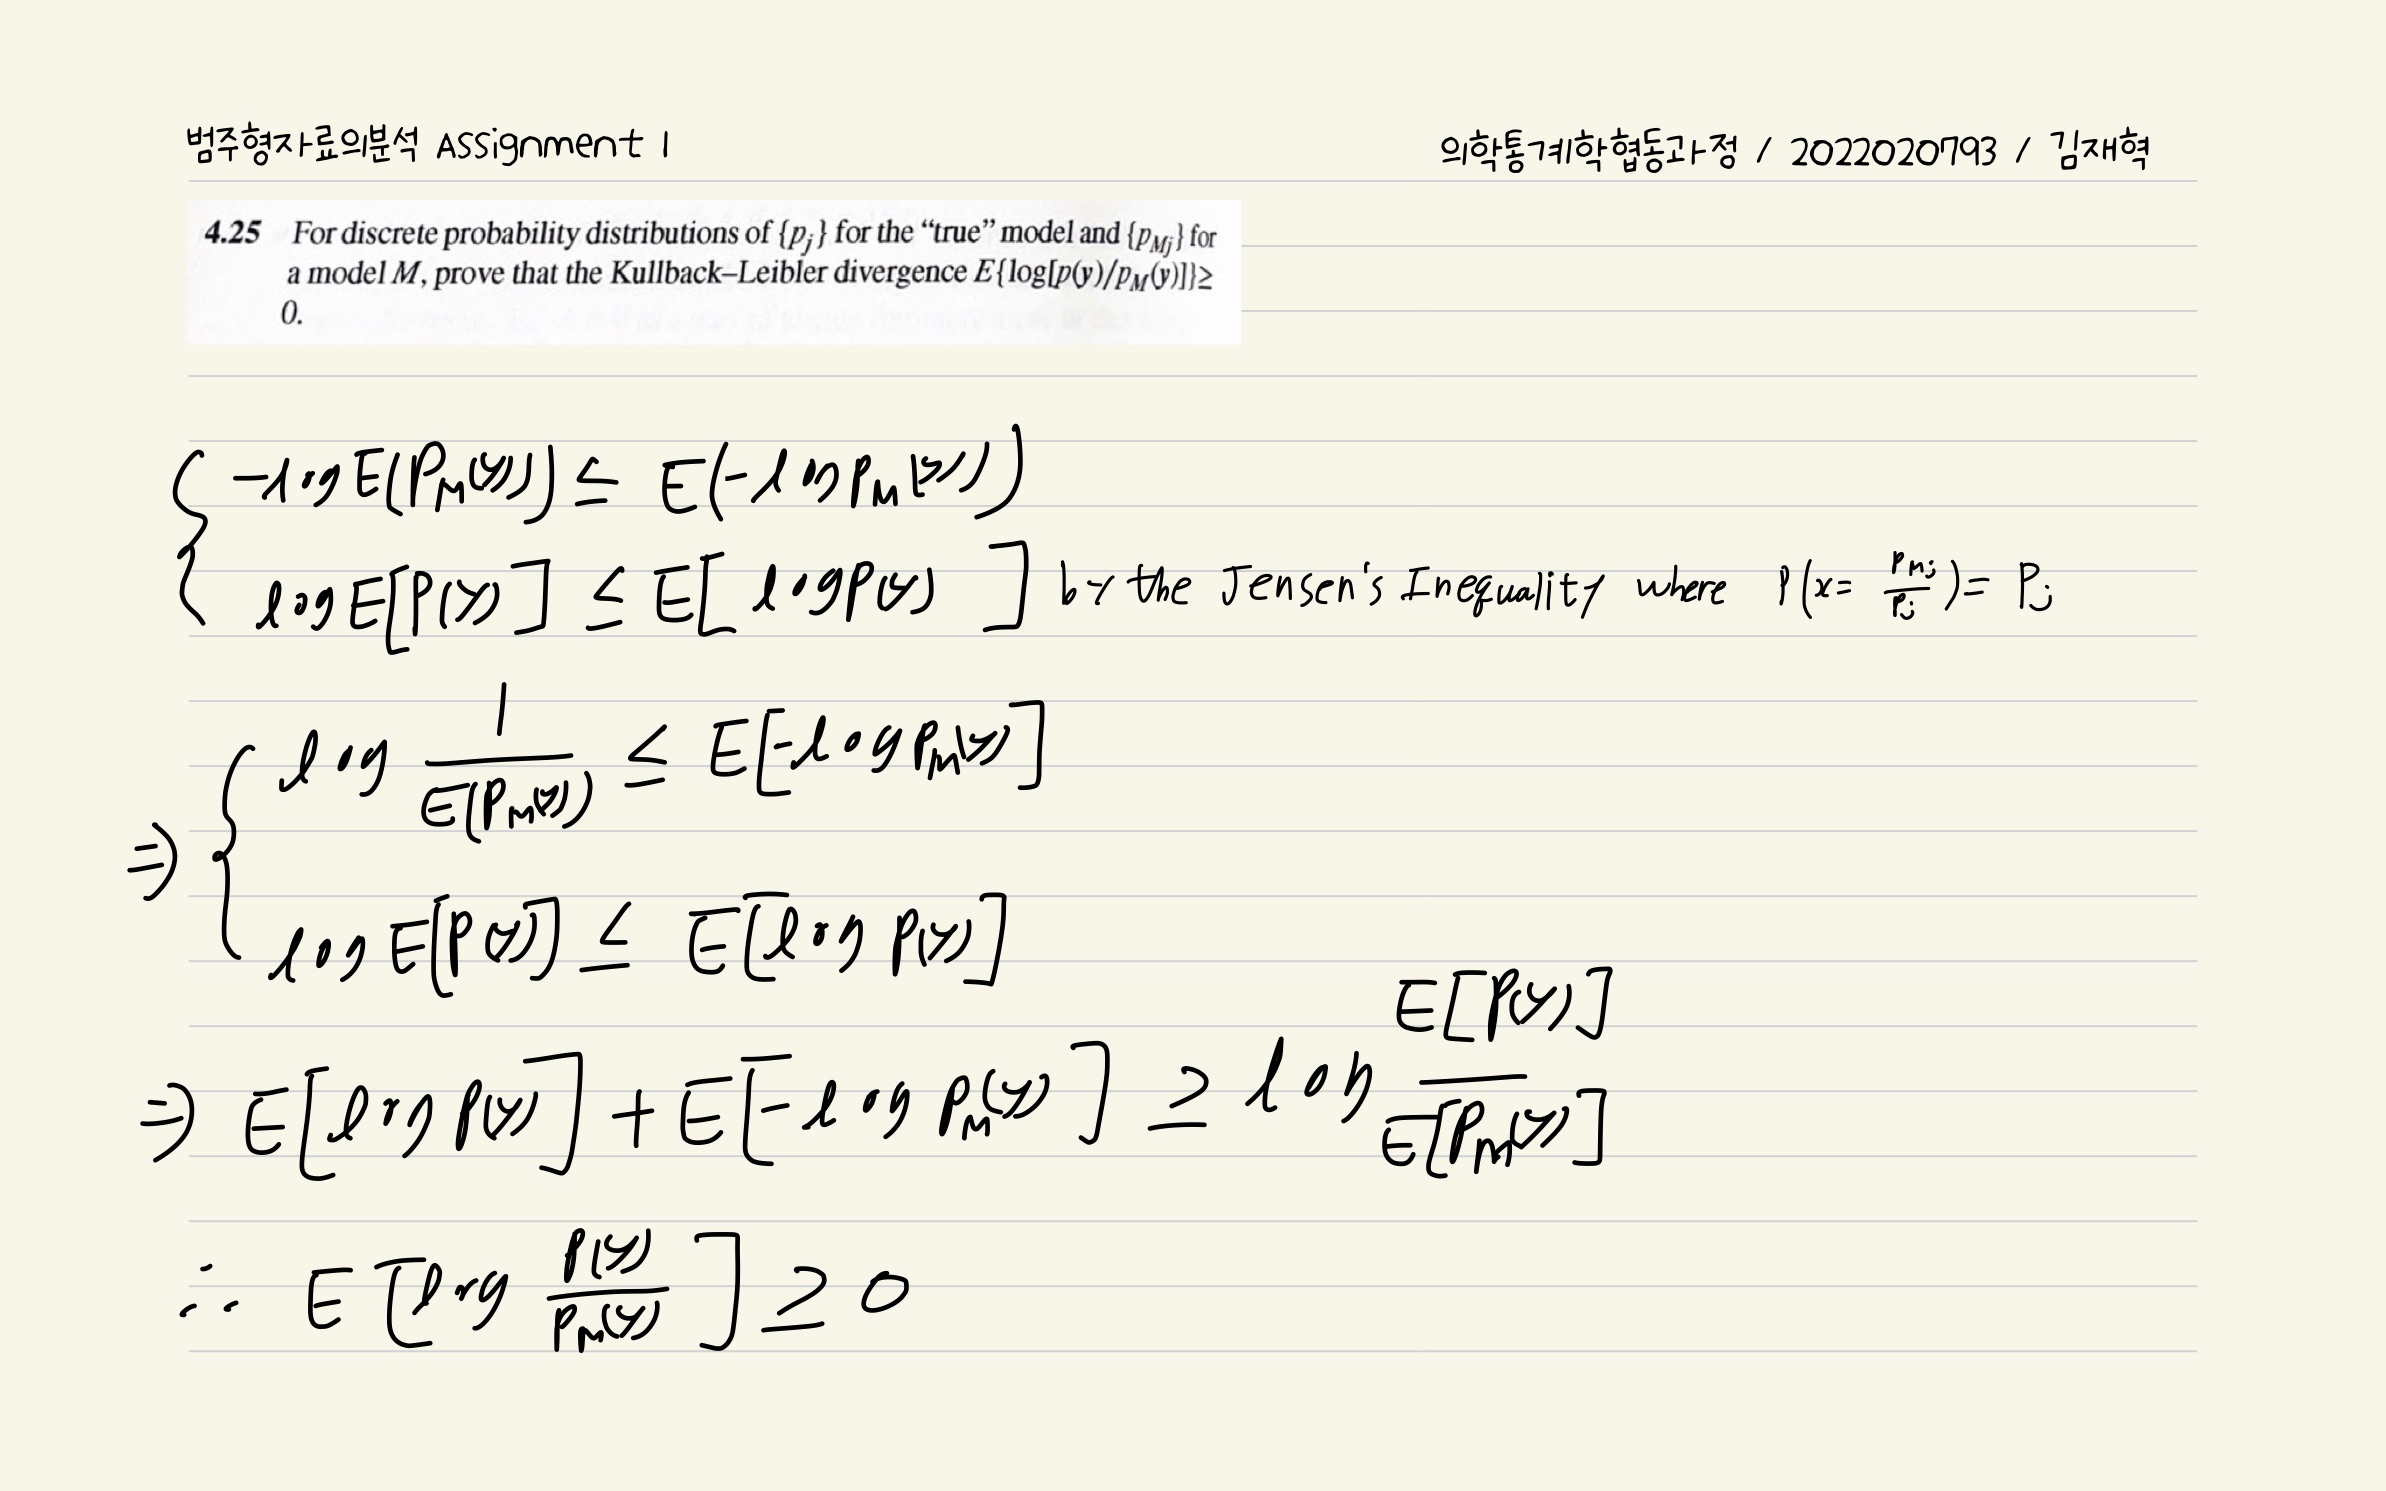 범주형자료의분석 Assignment 1
의학통계학협동과정 / 2022020793 / 김재혁
4.25 For discrete probability distributions of {p_j} for the “true” model and {p_Mj} for
a model M, prove that the Kullback–Leibler divergence E{log[p(y)/p_M(y)]}≥
0.
-log E(P_M(y)) ≤ E(-log P_M(y))
log E[P(y)] ≤ E[log P(y)] by the Jensen's Inequality where P(x= P_Mj/P_j)= P_j
⇒ log 1/E(P_M(y)) ≤ E[-log P_M(y)]
log E[P(y)] ≤ E[log P(y)]
⇒ E[log P(y)] + E[-log P_M(y)] ≥ log E[P(y)]/E[P_M(y)]
∴ E[log P(y)/P_M(y)] ≥ 0